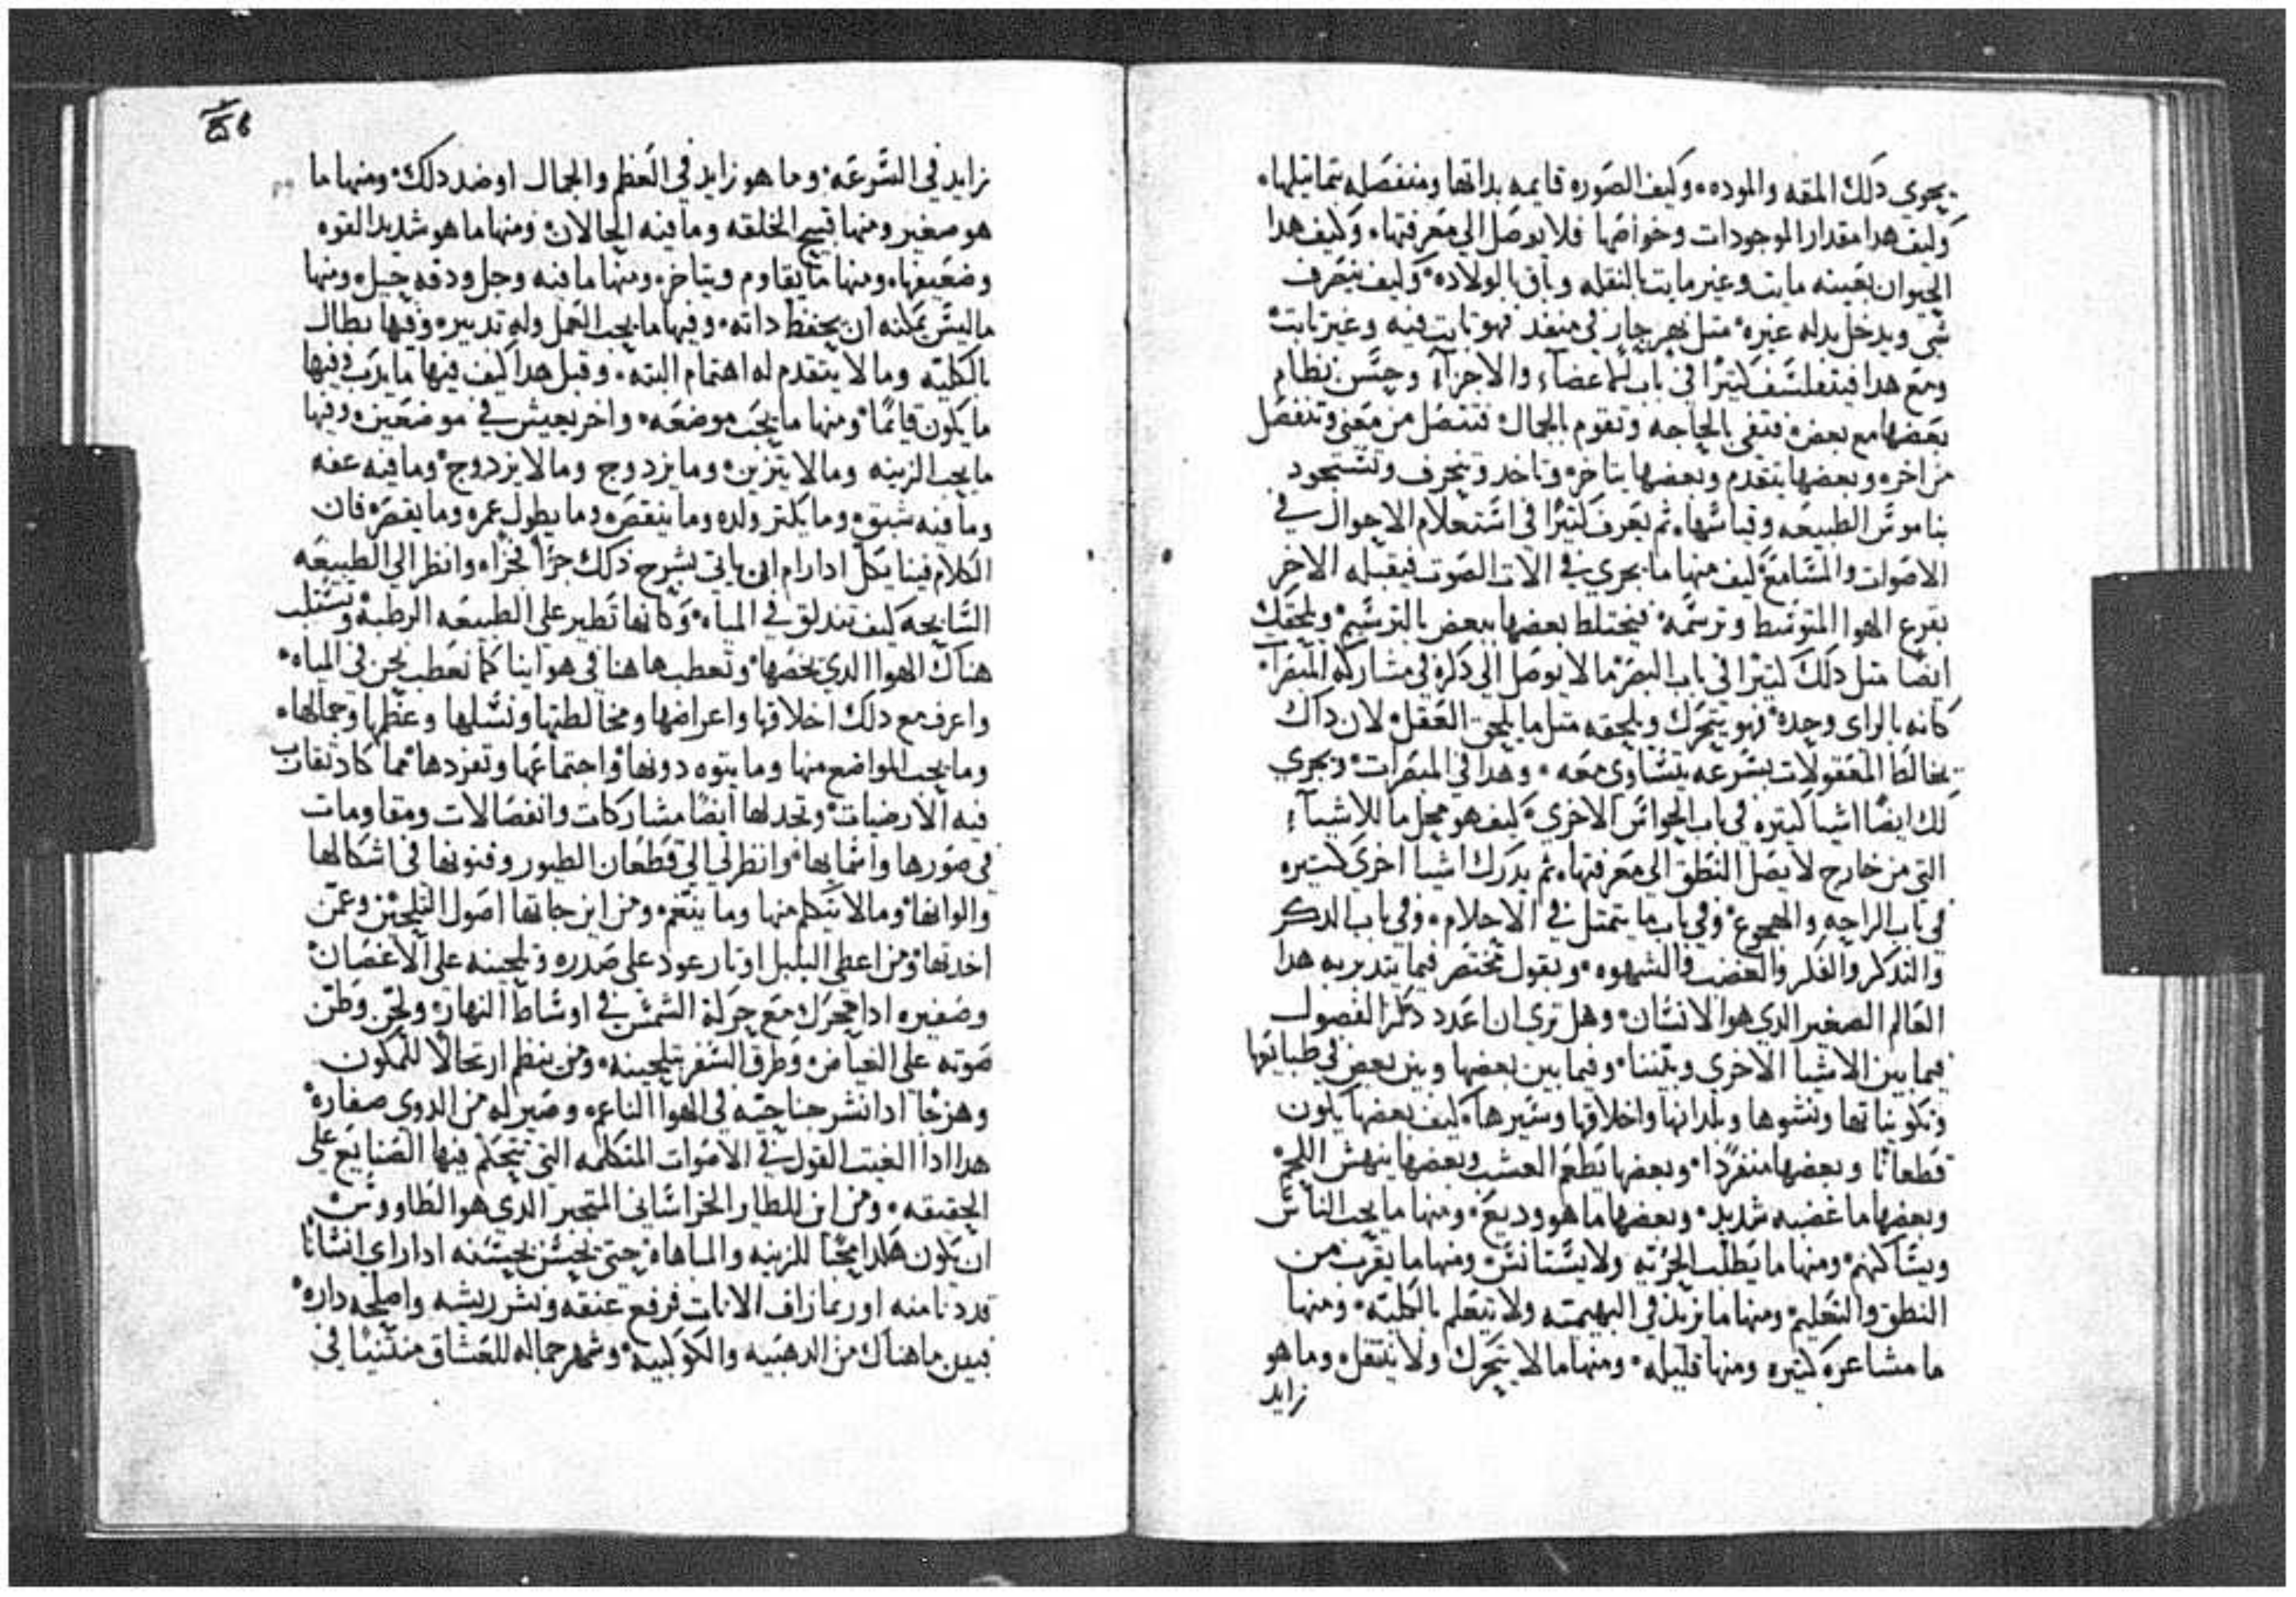 يجوي دلك المقه والموده، وكيف الصوره قايمه بداتها ومنفصله بتماتيلها،
وكيف هدا مقدار الموجودات وخواصها فلا يوصل الي معرفتها، وكيف هدا
الحيوان بعينه مايت وغير مايت بالنقله وباق بالولاده، وكيف ينصرف
شي ويدخل بدله غيره، متل نهر جار في منفد فهو تابت فيه وغير تابت
ومع هدا فيتفلسف كتيرًا في باب الاعضاء والاجزاء وحسن نظام
بعضها مع بعض، فتفي بالحاجه وتقوم بالجمال فتتصل من معني وتنفصل
من اخر، وبعضها يتقدم وبعضها يتاخر، وتاخد وتنحرف وتستجود
بناموس الطبيعه وقياسها، ثم تعرف كتيرًا في استعلام الاحوال في
الاصوات والمسامع، كيف منها ما يجري في الات الصوت فيقبله الاخر
بقرع الهوا المتوسط وترسمه، فيختلط بعضها ببعض بالترسيم، ويلحقك
ايضًا متل دلك كتيرًا في باب البصر ما لا يوصل الي دكره في مشاركه المبصرات
كانه بالراي وحده، فهو يتحرك ويلحقه متل ما يلحق العقل، لان داك
يخالط المعقولات بسرعه يتساوي معه، وهدا في المبصرات، ويجري
لك ايضًا اشيا كتيره في باب الحواس الاخري، كيف هو محل ما للاشياء
التي من خارج لا يصل النطق الي معرفتها، ثم يدرك اشيا اخري كتيره
في باب الراحه والهجوع، وفي باب ما يتمتل في الاحلام، وفي باب الدكر
والتدكر والفكر والغضب والشهوه، وبقول مختصر فيما يتدبر به هدا
العالم الصغير الدي هو الانسان، وهل تري ان اعدد دكر الفصول
فيما بين الاشيا الاخري وبيننا، وفيما بين بعضها وبين بعض في طبايعها
وتكويناتها ونشوها وبلدانها واخلاقها وسيرها، كيف بعضها يكون
قطعانًا وبعضها منفردًا، وبعضها يطعم العشب وبعضها ينهش اللحم
وبعضها ما غضبه شديد، وبعضها ما هو وديع، ومنها ما يحب الناس
ويساكنهم، ومنها ما يطلب الحريه ولا يستانس، ومنها ما يقرب من
النطق والتعليم، ومنها ما يزيد في البهيميه ولا يتعلم بالكليه، ومنها
ما مشاعره كتيره ومنها قليله، ومنها ما لا يتحرك ولا ينتقل، وما هو
زايد
زايد في السرعه، وما هو زايد في العظم والجمال او ضد دلك، ومنها ما
هو صغير ومنها قبيح الخلقه وما فيه الحالان، ومنها ما هو شديد القوه
وضعيفها، ومنها ما يقاوم ويتاخر، ومنها ما فيه وجل ودقه حيل، ومنها
ما ليس يمكنه ان يحفظ داته، وفيها ما يحب العمل وله تدبير، وفيها بطال
بالكليه وما لا يتقدم له اهتمام البته، وقبل هدا كيف فيها ما يدب وفيها
ما يكون قايمًا، ومنها ما يحب موضعه، واخر يعيش في موضعين، وفيها
ما يحب الزينه وما لا يتزين، وما يزدوج وما لا يزدوج، وما فيه عفه
وما فيه شبق، وما يكتر ولده وما ينقص، وما يطول عمره وما يقصر، فان
الكلام فينا يكل ادا رام ان ياتي بشرح دلك جزًا بجزاء، وانظر الي الطبيعه
السابحه كيف تندلق في المياه، وكانها تطير علي الطبيعه الرطبه وتستلب
هناك الهوا الدي يخصها، وتعطب هاهنا في هواينا كما نعطب نحن في المياه،
واعرف مع دلك اخلاقها واعراضها ومخالطتها ونسلها وعظمها وجمالها،
وما يحب المواضع منها وما يتوه دونها، واجتماعها وتفردها، مما كاد تقارب
فيه الارضيات، وتجد لها ايضًا مشاركات وانفصالات ومقاومات
في صورها واسمايها، وانظر لي الي قطعان الطيور وفنونها في اشكالها
والوانها، وما لا يتكلم منها وما ينتغم، ومن اين جاتها اصول التلحين وعمن
اخدتها، ومن اعطي البلبل اوتار عود علي صدره وتلحينه علي الاغصان
وصفيره ادا تحرك مع حركة الشمس في اوساط النهار، ولحن وطن
صوته علي الغياض، وطرق السفر بتلحينه، ومن ينظم ارتجالًا للمكون
وهزجًا ادا نشر جناحيه في الهوا الناعم، وصير له من الدوي صفاره،
هدا ادا الغيت القول في الاصوات المتكلمه التي تتحكم فيها الصنايع علي
الحقيقه، ومن اين للطاير الخراساني المتحير الدي هو الطاووس
ان يكون هكدا محبًا للزينه والمباهاه، حتي يحس بحسنه ادا راي انسانًا
قد دنا منه او ربما زاف الانات فرفع عنقه ونشر ريشه واصلحه داره
فبين ما هناك من الدهبيه والكوكبيه، وشهر جماله للعشاق متثنيًا في